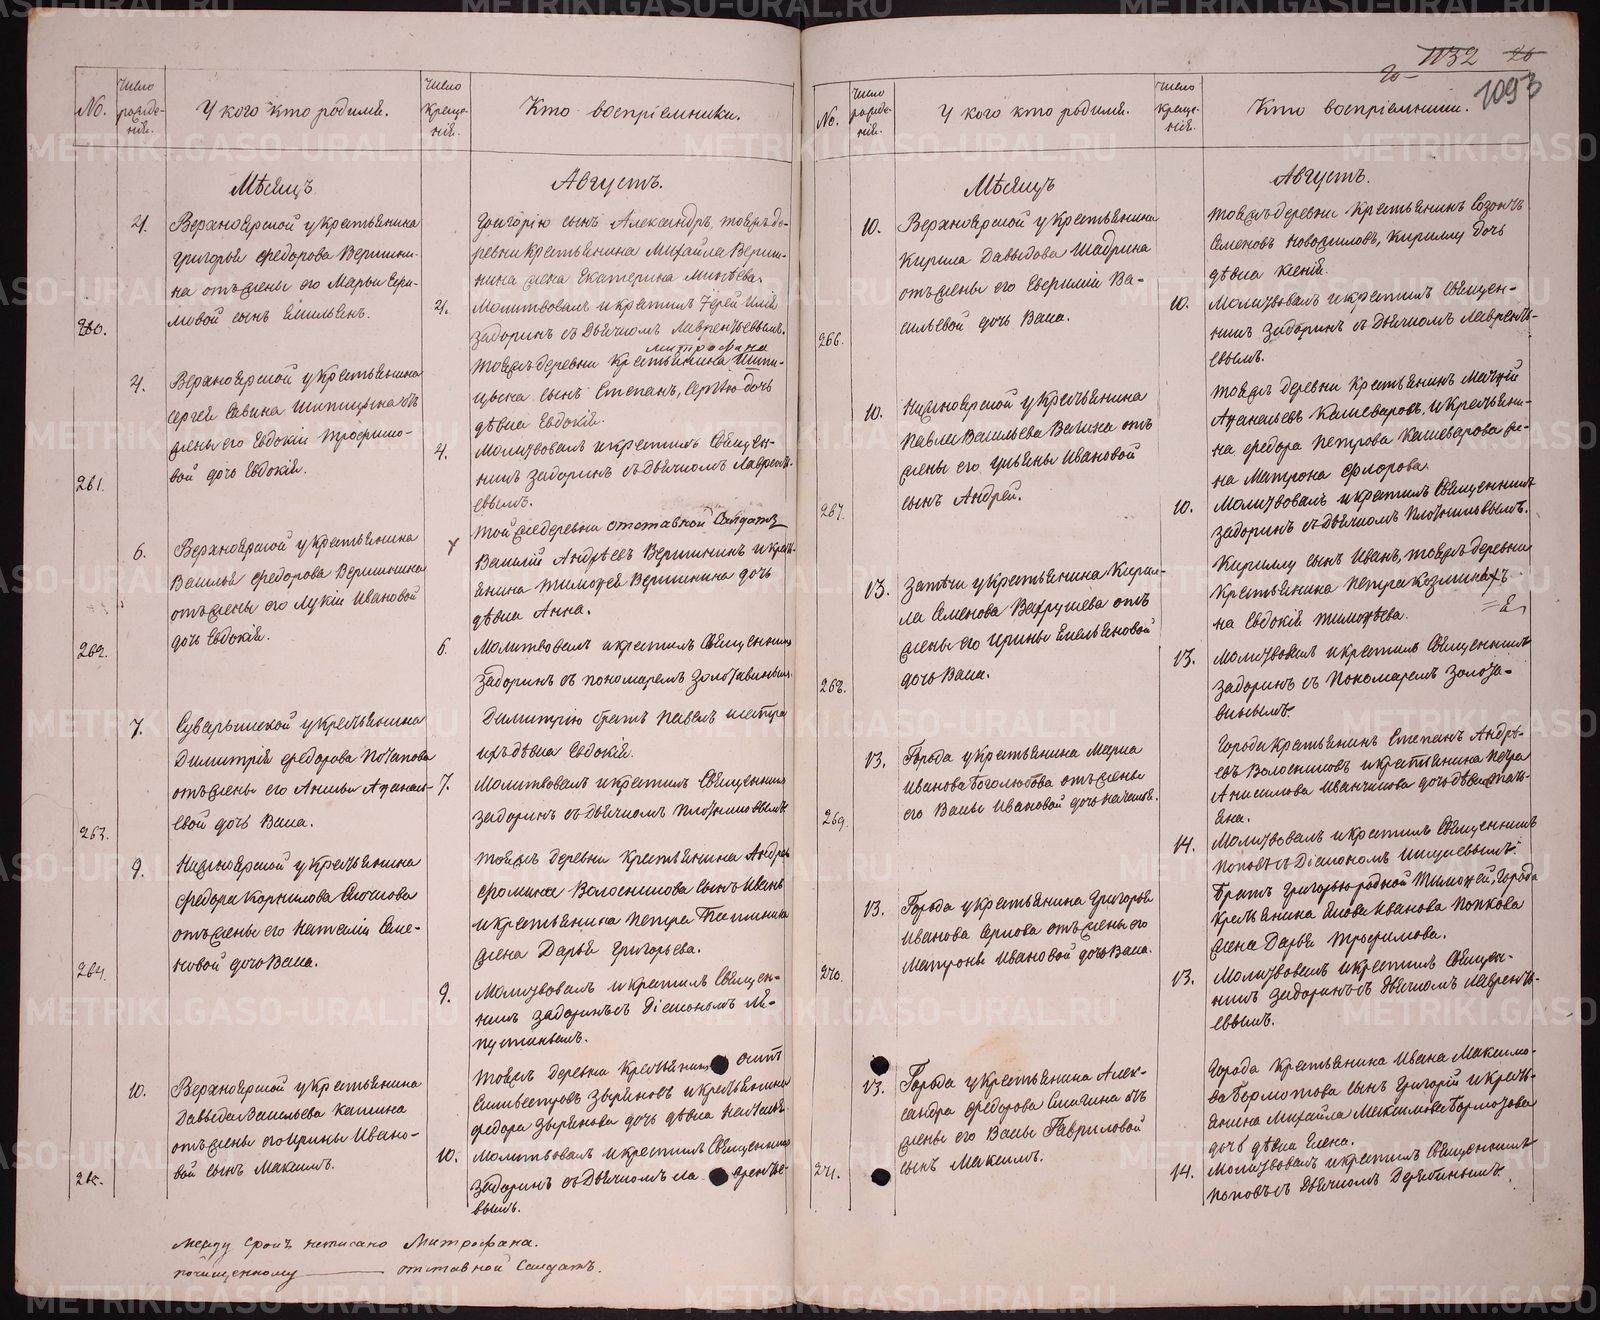 1132 26
1093
No.
Число рожде-нія.
У кого кто родился.
Число Креще-нія.
Кто воспріемники.
Мѣсяцъ
Августъ.
260.
4.
Верхноярской у Крестьянина
Григорья Федорова Вершини-
на отъ жены его Марьи
сынъ Емильянъ.
Григорію сынъ Александръ, тояжъ де-
ревни Крестьянина Михайла Верши-
нина жена Екатерина Минѣева.
4.
Молитвовалъ и крестилъ Іерей Илія
Задоринъ съ Дьячкомъ Лаврентьевымъ.
261.
4.
Верхноярской у Крестьянина
Сергея Савина Шипицына отъ
жены его Евдокіи Трофимо-
вой дочь Евдокія.
Митрофана
Тояжъ деревни Крестьянина Шипи-
цына сынъ Степанъ, Сергѣю дочь
дѣвка Евдокія.
4.
Молитвовалъ и крестилъ Священ-
никъ Задоринъ съ Дьячкомъ Лаврент-
евымъ.
262.
6.
Верхноярской у Крестьянина
Василья Федорова Вершинина
отъ жены его Лукіи Ивановой
дочь Евдокія.
Той же деревни отставной Салдатъ
Василій Андрѣевъ Вершининъ и крест-
янина Тимофея Вершинина дочь
дѣвка Анна.
6.
Молитвовалъ и крестилъ Священникъ
Задоринъ съ пономаремъ Золотавинымъ.
263.
7.
Суварышской у Крестьянина
Димитрія Федорова Потапова
отъ жены его Анны Афанась-
евой дочь Васа.
Димитрію братъ Павелъ сестра
ихъ дѣвка Евдокія.
7.
Молитвовалъ и крестилъ Священникъ
Задоринъ съ Дьячкомъ Плотниковымъ.
264.
9.
Нижноярской у Крестьянина
Федора Корнилова
отъ жены его Наталіи Семе-
новой дочь Васа.
Тояжъ деревни Крестьянина Андрея
Фомина Волосникова сынъ Иванъ
и крестьянина Петра
жена Дарья Григорьева.
9.
Молитвовалъ и крестилъ Священ-
никъ Задоринъ съ Діакономъ
265.
10.
Верхноярской у Крестьянина
Давыда Васильева Катина
отъ жены его Ирины Ивано-
вой сынъ Максимъ.
Тояжъ деревни Крестьянинъ
Силивестровъ Зыряновъ и крестьянина
Федора Зырянова дочь дѣвка Наталья.
10.
Молитвовалъ и крестилъ Священникъ
Задоринъ съ Дьячкомъ Ла врентье-
вымъ.
между строкъ написано Митрофана.
почищенному отставной Салдатъ.
No.
Число рожде-нія.
У кого кто родился.
Число Креще-нія.
Кто воспріемники.
Мѣсяцъ
Августъ.
266.
10.
Верхноярской у Крестьянина
Кирила Давыдова Шадрина
отъ жены его Евфиміи Ва-
сильевой дочь Васа.
Тояжъ деревни Крестьянинъ Созонтъ
Семеновъ Новоселовъ, Кирилу дочь
дѣвка Ксенія.
10.
Молитвовалъ и крестилъ Священ-
никъ Задоринъ съ Дьячкомъ Лаврентъ-
евымъ.
267.
10.
Нижноярской у Крестьянина
Павла Васильева Вагина отъ
жены его Ульяны Ивановой
сынъ Андрей.
Тояжъ деревни Крестьянинъ Матфій
Афанасьевъ Кашеваровъ, и Крестьяни-
на Федора Петрова Кашеварова же-
на Матрона Флорова.
10.
Молитвовалъ и крестилъ Священникъ
Задоринъ съ Дьячкомъ Плотниковымъ.
268.
13.
Затечи у Крестьянина Кирил-
ла Семенова Вахрушева отъ
жены его Ирины Емельяновой
дочь Васа.
Кирилу сынъ Иванъ, тояжъ деревни
Крестьянина Петра Козминыхъ
же-
на Евдокія Тимофѣева.
13.
Молитвовалъ и крестилъ Священникъ
Задоринъ съ Пономаремъ Золота-
винымъ.
269.
13.
Города у Крестьянина Марка
Иванова Боголюбова отъ жены
его Васы Ивановой дочь Наталья.
Города Крестьянинъ Степанъ Андрѣ-
евъ Волосниковъ и крестьянина Петра
Анисимова Иванчикова дочь дѣвка Тать-
яна.
14.
Молитвовалъ и крестилъ Священникъ
Поповъ съ Діакономъ
270.
13.
Города у Крестьянина Григорья
Иванова отъ жены его
Матроны Ивановой дочь Васа.
Братъ Григорью родной Тимофей, Города
Крестьянина Якова Иванова Попкова
жена Дарья Трофимова.
13.
Молитвовалъ и крестилъ Священ-
никъ Задоринъ съ Дьячкомъ Лаврентъ-
евымъ.
271.
13.
Города у Крестьянина Алек-
сандра Федорова Смагина отъ
жены его Васы Гавриловой
сынъ Максимъ.
Города Крестьянина Ивана Максимо-
ва Бормотова сынъ Григорій и кресть-
янина Михайла Максимова Бормотова
дочь дѣвка Елена.
14.
Молитвовалъ и крестилъ Священникъ
Поповъ съ Дьячкомъ Дерябинымъ.
METRIKI.GASO-URAL.RU